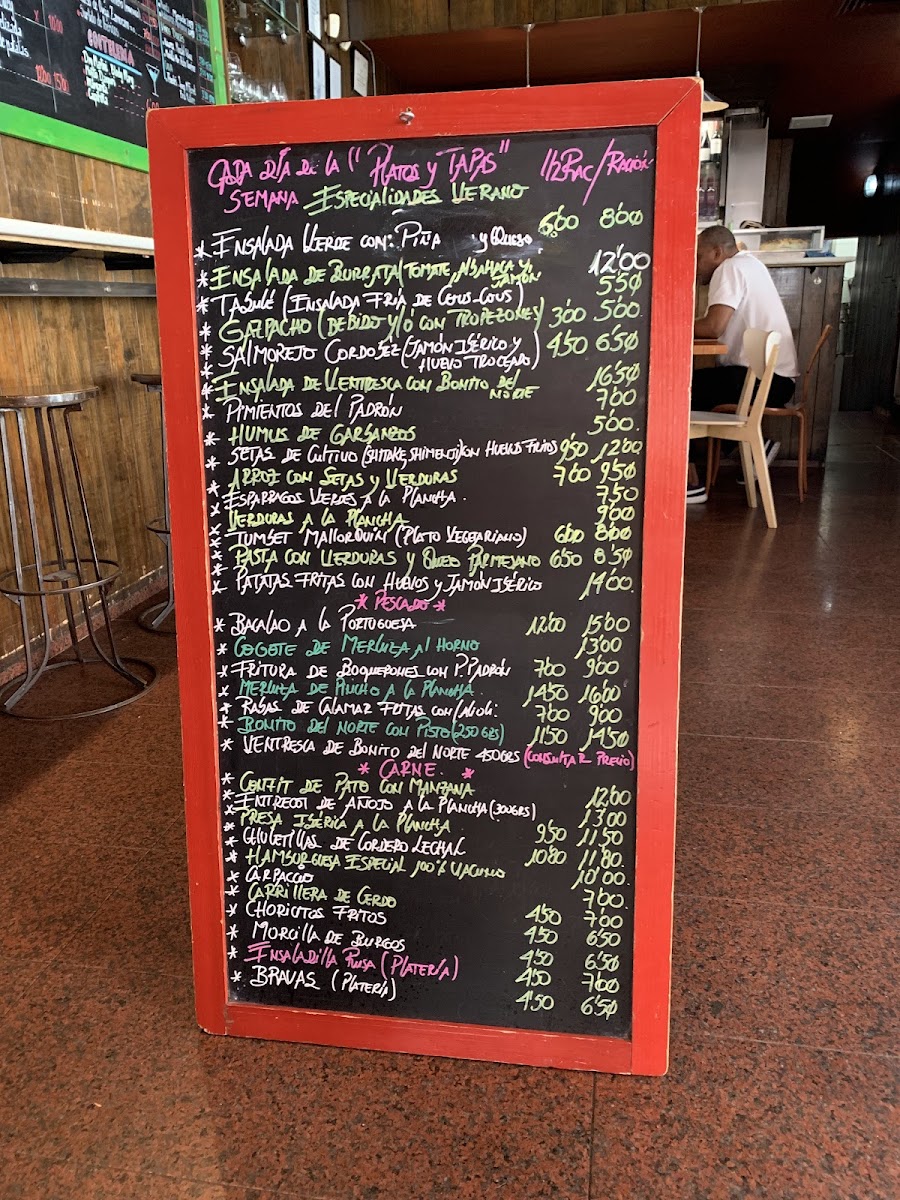 COCTELERIA
CADA DÍA DE LA "PLATOS Y TAPAS" 1/2RAC/RACIÓN
SEMANA ESPECIALIDADES VERANO
* ENSALADA VERDE CON: PIÑA Y QUESO 5'00 8'00
* ENSALADA DE BURRATA (TOMATE, ALBAHACA Y JAMÓN 12'00
* TABULÉ (ENSALADA FRIA DE COUS-COUS) 5'50
* GAZPACHO (BEBIDO Y/O CON TROPEZONES) 3'00 5'00.
* SALMOREJO CORDOBEZ (JAMÓN IBÉRICO Y HUEVO TROCEADO) 4'50 6'50
* ENSALADA DE VENTRESCA CON BONITO DEL NORTE 16'50
* PIMIENTOS DEL PADRÓN 7'00
* HUMUS DE GARBANZOS 5'00.
* SETAS DE CULTIVO (SHITAKE, SHIMENJI) CON HUEVOS FRITOS 9'50 12'00
* ARROZ CON SETAS Y VERDURAS 7'00 9'50
* ESPARRAGOS VERDES A LA PLANCHA. 7'50
* VERDURAS A LA PLANCHA 9'00
* TUMBET MALLORQUIN (PLATO VEGETARIANO) 6'00 8'00
* PASTA CON VERDURAS Y QUESO PARMESANO 6'50 8'50
* PATATAS FRITAS CON HUEVOS Y JAMÓN IBÉRICO 14'00.
* PESCADO *
* BACALAO A LA PORTUGUESA 12'00 15'00
* COGOTE DE MERLUZA AL HORNO 13'00
* FRITURA DE BOQUERONES CON P. PADRÓN 7'00 9'00
* MERLUZA DE PINCHO A LA PLANCHA. 14'50 16'00
* RABAS DE CALAMAR FRITAS CON ALIOLI. 7'00 9'00
* BONITO DEL NORTE CON PISTO (250GRS) 11'50 14'50
* VENTRESCA DE BONITO DEL NORTE 450GRS (CONSULTAR PRECIO)
* CARNE. *
* CONFIT DE PATO CON MANZANA 12'00
* ENTRECOT DE AÑOJO A LA PLANCHA (300GRS) 13'00
* PRESA IBÉRICA A LA PLANCHA 9'50 11'50
* CHULETILLAS DE CORDERO LECHAL 10'80 11'80.
* HAMBURGUESA ESPECIAL 100% VACUNO 10'00.
* CARPACCIO 7'00.
* CARRILLERA DE CERDO 4'50 7'00
* CHORICITOS FRITOS 4'50 6'50
* MORCILLA DE BURGOS 4'50 6'50
* ENSALADILLA RUSA (PLATERÍA) 4'50 7'00
* BRAVAS (PLATERÍA) 4'50 6'50